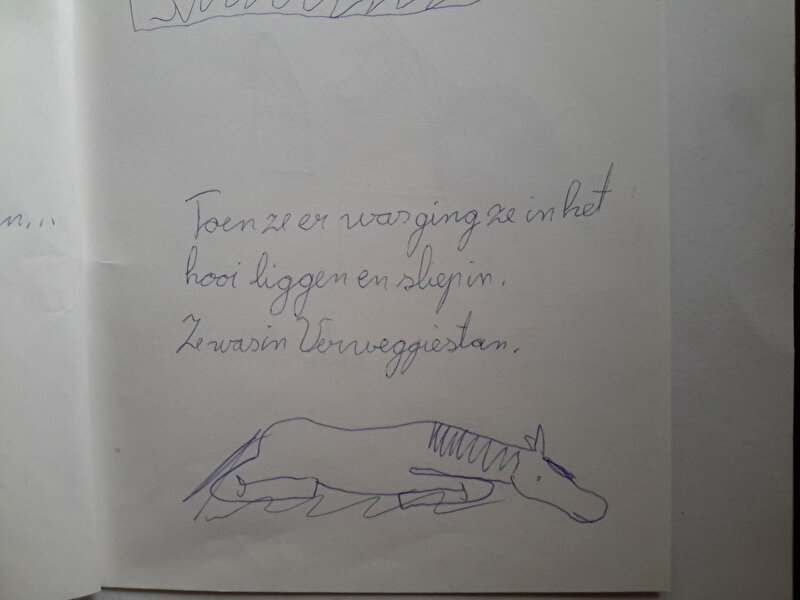 n...
Toen ze er was ging ze in het
hooi liggen en sliep in.
Ze was in Verweggiestan.